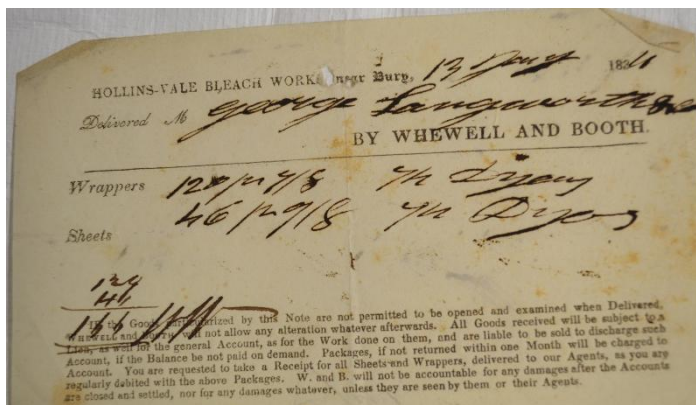 HOLLINS-VALE BLEACH WORKS near Bury, 13 183
Delivered M George Langworth
BY WHEWELL AND BOOTH.
Wrappers 120 7/8 Dyers
Sheets 46 9/8 Dyers
If the Goods particularized by this Note are not permitted to be opened and examined when Delivered,
WHEWELL and BOOTH will not allow any alteration whatever afterwards. All Goods received will be subject to a
Lien, as well for the general Account, as for the Work done on them, and are liable to be sold to discharge such
Account, if the Balance be not paid on demand. Packages, if not returned within one Month will be charged to
Account. You are requested to take a Receipt for all Sheets and Wrappers, delivered to our Agents, as you are
regularly debited with the above Packages. W. and B. will not be accountable for any damages after the Accounts
are closed and settled, nor for any damages whatever, unless they are seen by them or their Agents.